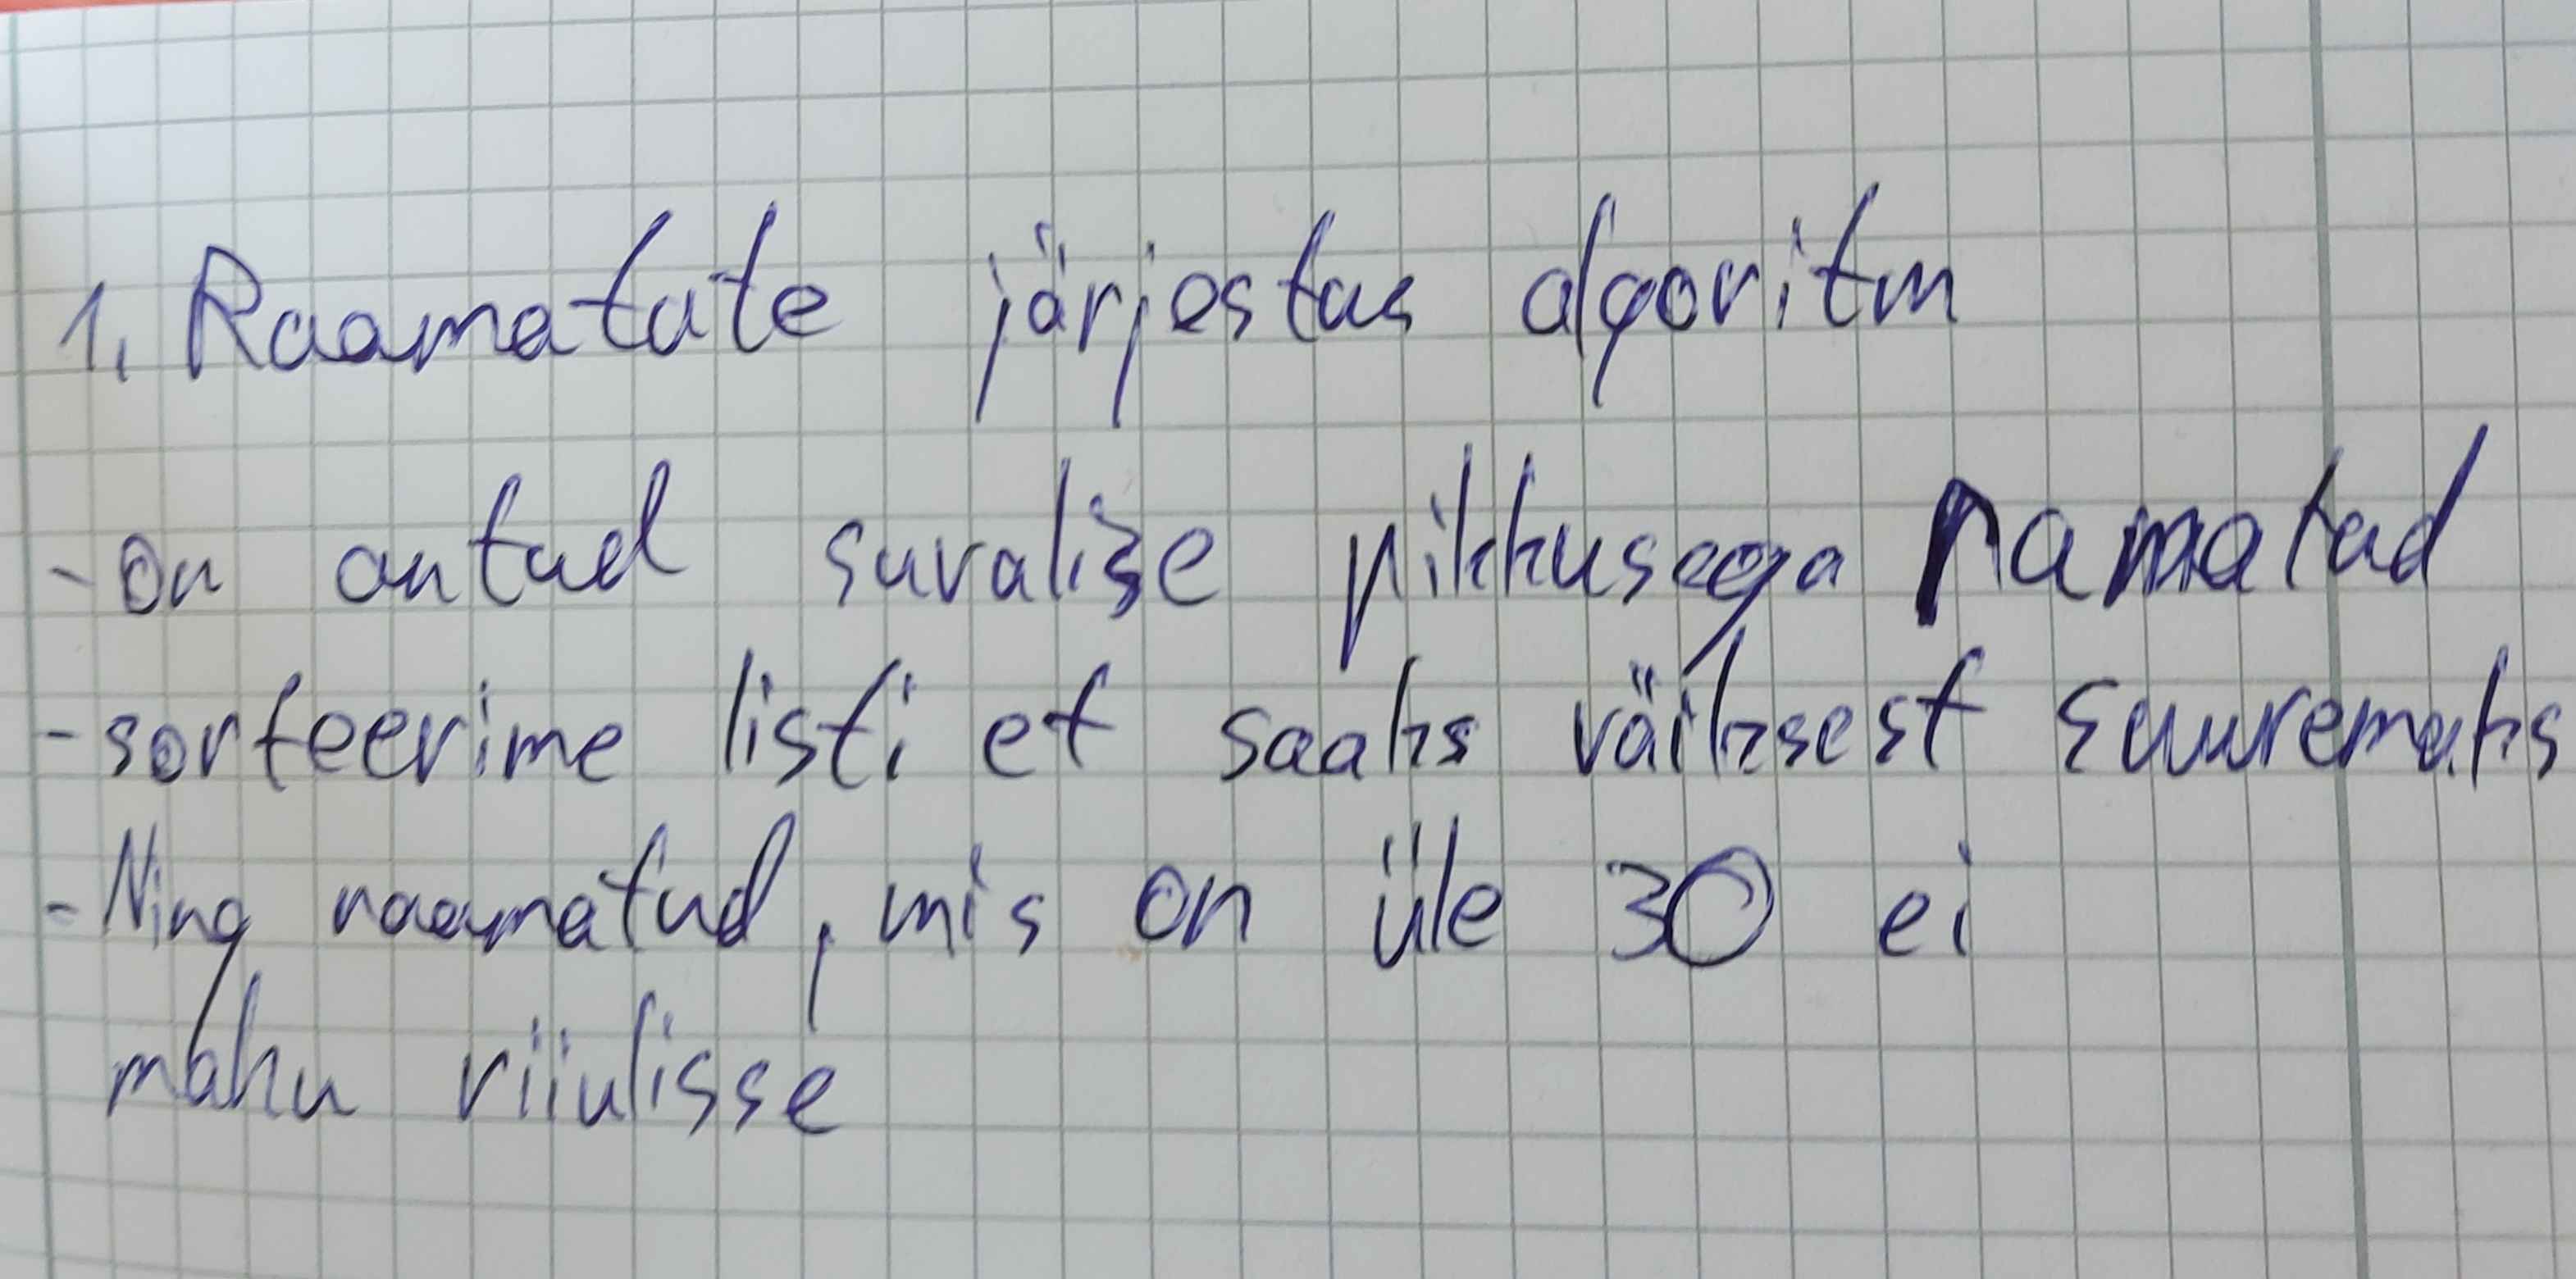 1. Raamatute järjestus algoritm
- on antud suvalise pikkusega ramatud
- sorteerime listi et saaks väiksest suuremaks
- Ning raamatud, mis on üle 30 ei
mahu riiulisse